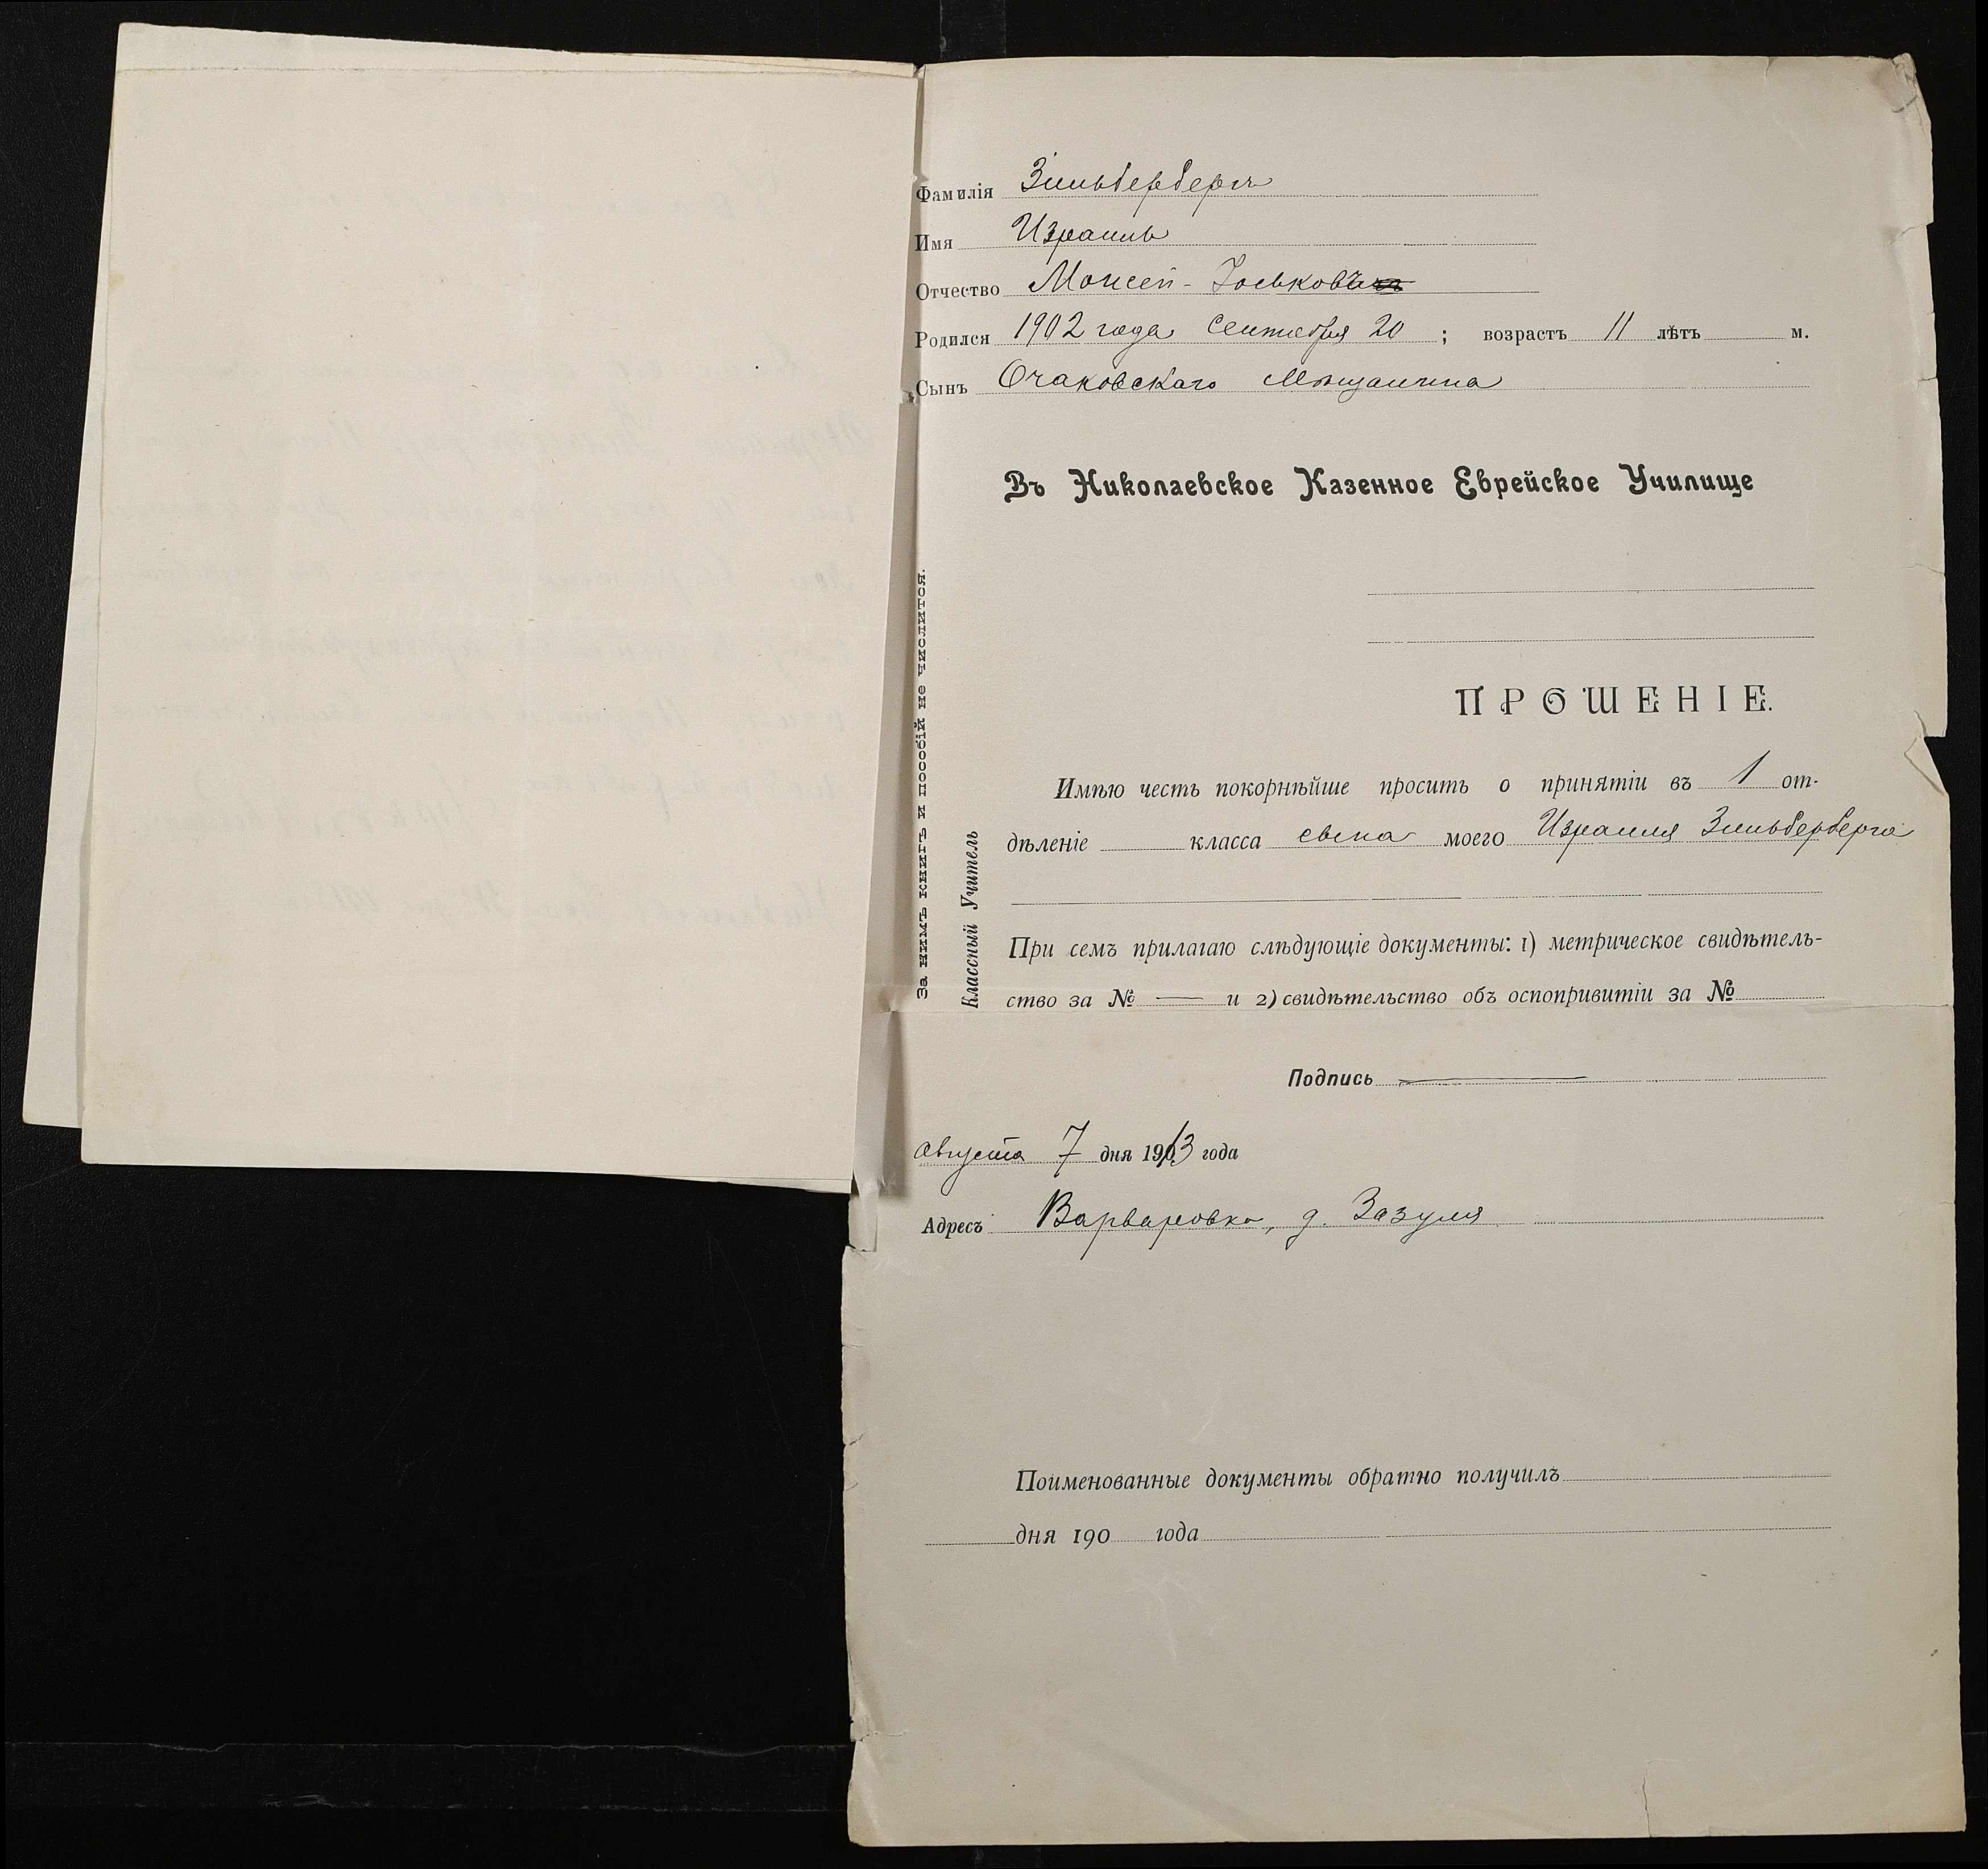 Фамилія Зильбербергъ
Имя Израиль
Отчество Моисей-Іоськовъ
Родился 1902 года Сентября 20 ; возрастъ 11 лѣтъ м.
Сынъ Очаковскаго Мѣщанина
Въ Николаевское Казенное Еврейское Училище
ПРОШЕНІЕ.
Имѣю честь покорнѣйше просить о принятіи въ 1 от-
дѣленіе класса сына моего Израиля Зильберберга
При семъ прилагаю слѣдующіе документы: 1) метрическое свидѣтель-
ство за № — и 2) свидѣтельство объ оспопривитіи за №
Подпись —
августа 7 дня 1913 года
Адресъ Варваровка, д. Зазуля
Поименованные документы обратно получилъ
дня 190 года
За нимъ книгъ и пособій не числится.
Классный Учитель